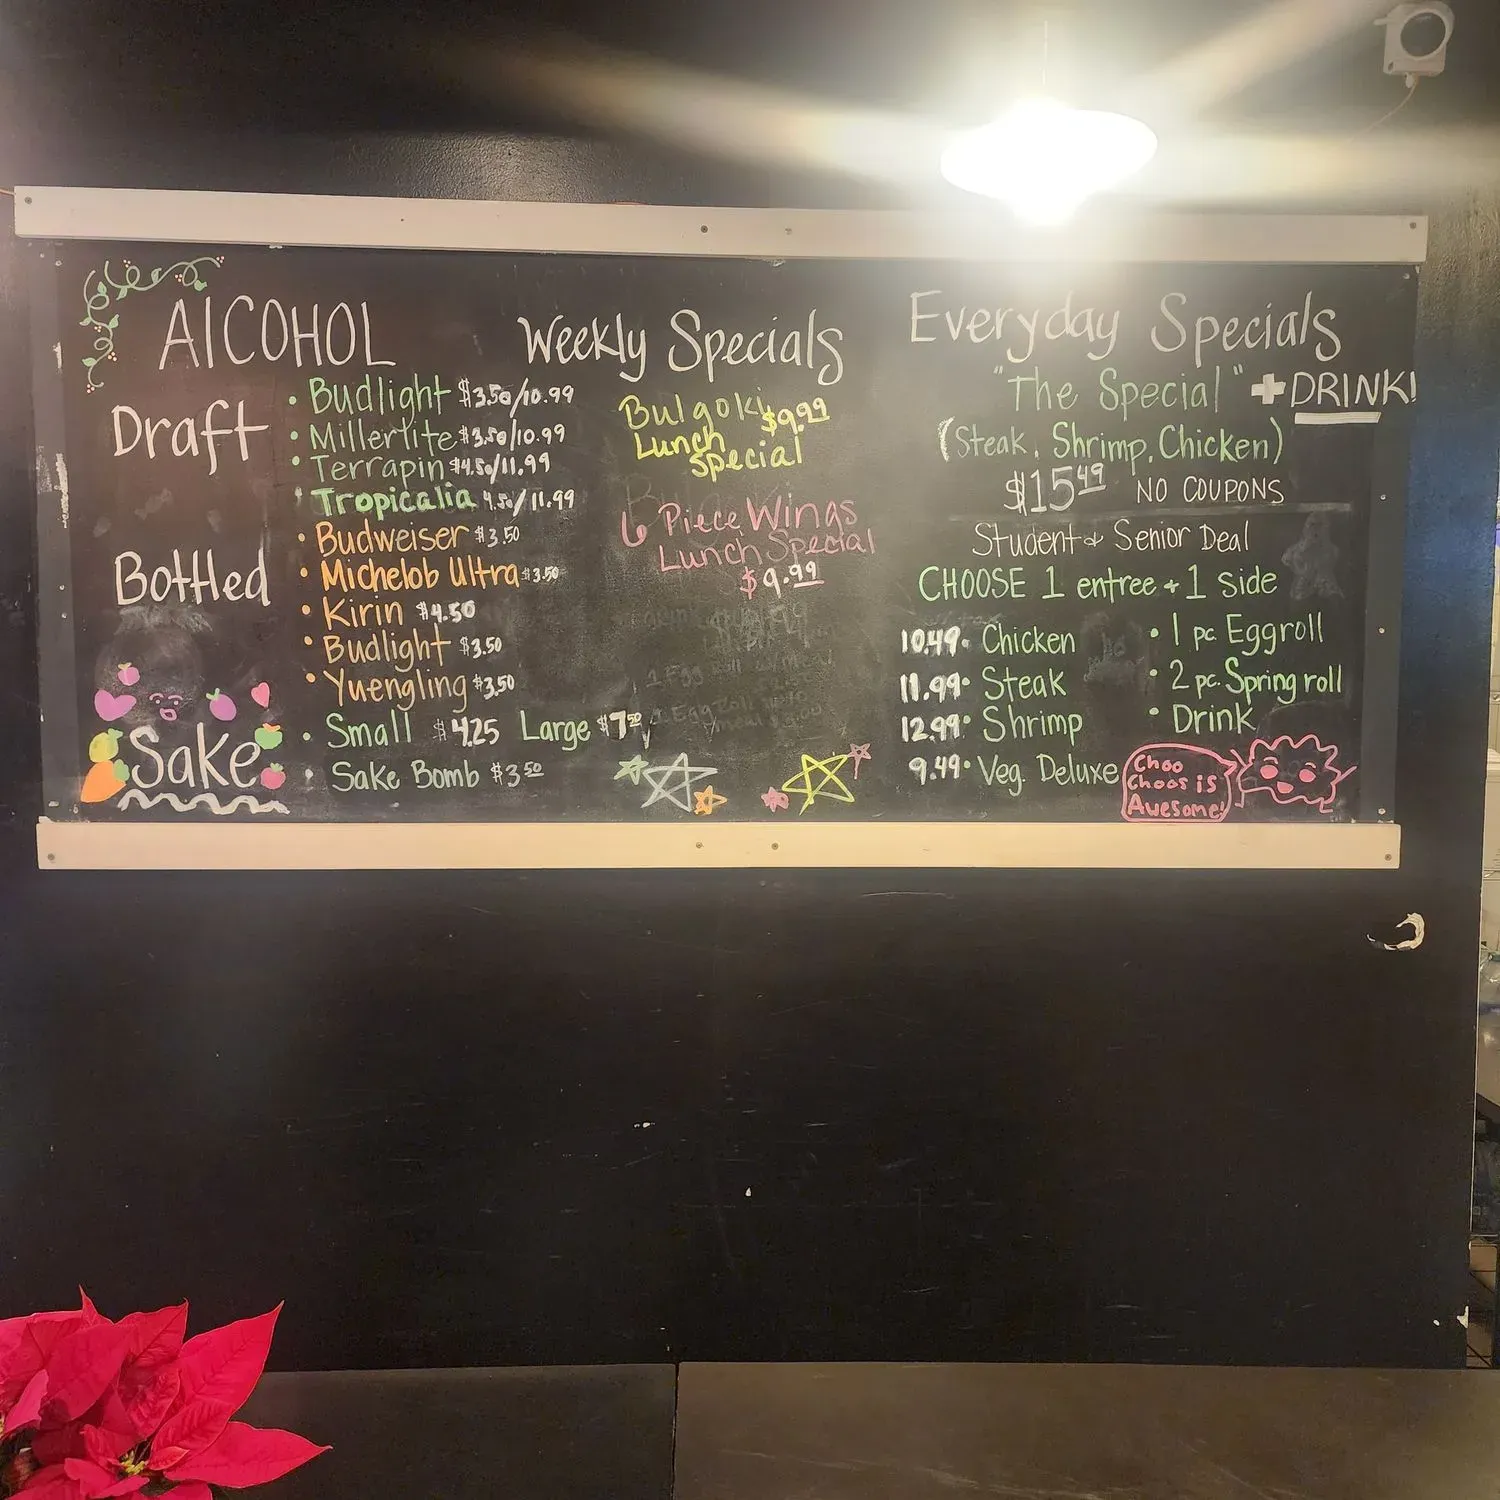 AlCOHOL
Draft
• Budlight $3.50/10.99
• Millerlite $3.50/10.99
• Terrapin $4.50/11.99
• Tropicalia 4.50/11.99
Bottled
• Budweiser $3.50
• Michelob Ultra $3.50
• Kirin $4.50
• Budlight $3.50
• Yuengling $3.50
Sake
• Small $4.25 Large $7.50
• Sake Bomb $3.50
Weekly Specials
Bulgoki $9.99
Lunch
Special
6 Piece Wings
Lunch Special
$9.99
Everyday Specials
"The Special" + DRINK!
(Steak, Shrimp, Chicken)
$15.49 NO COUPONS
Student & Senior Deal
CHOOSE 1 entree + 1 side
10.49• Chicken
11.99• Steak
12.99• Shrimp
9.49• Veg. Deluxe
• 1 pc. Eggroll
• 2 pc. Spring roll
• Drink
Choo
Choos is
Awesome!